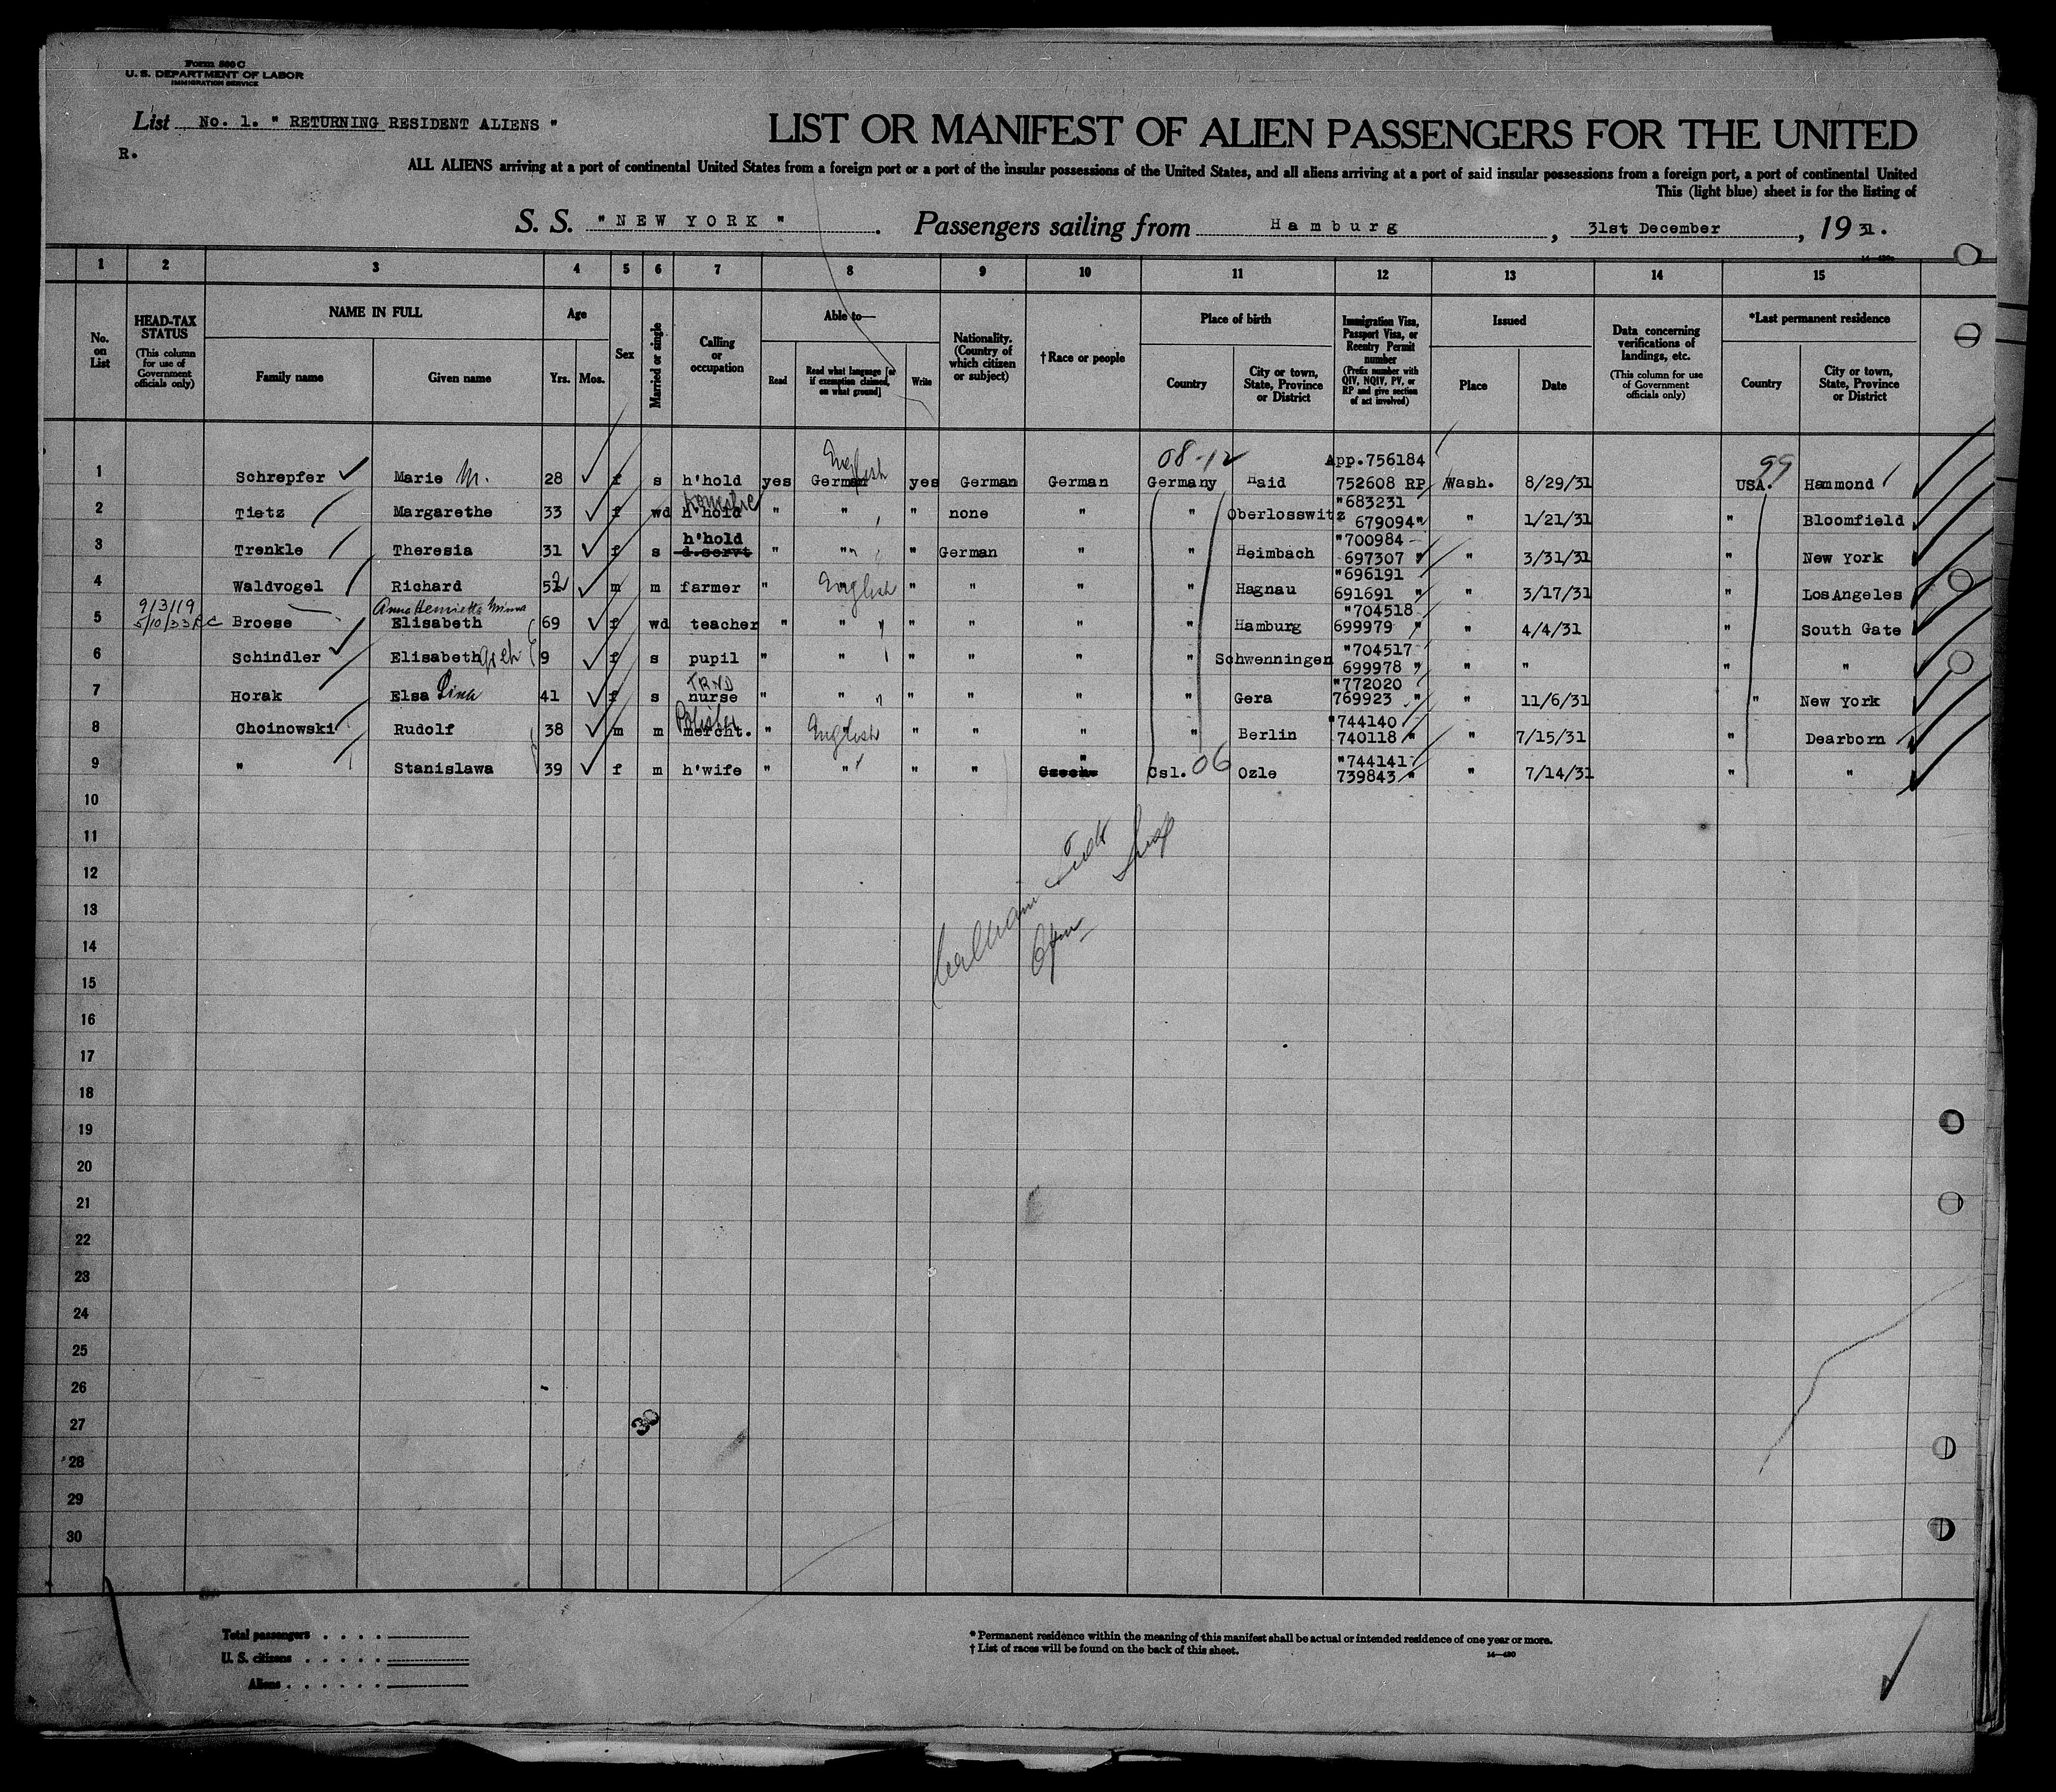 Form 500 C
U. S. DEPARTMENT OF LABOR
IMMIGRATION SERVICE
List No. 1. " RETURNING RESIDENT ALIENS "
R.
LIST OR MANIFEST OF ALIEN PASSENGERS FOR THE UNITED
ALL ALIENS arriving at a port of continental United States from a foreign port or a port of the insular possessions of the United States, and all aliens arriving at a port of said insular possessions from a foreign port, a port of continental United
This (light blue) sheet is for the listing of
S. S. " NEW YORK " . Passengers sailing from Hamburg , 31st December , 19 31.
1 2 3 4 5 6 7 8 9 10 11 12 13 14 15
No. on List
HEAD-TAX STATUS (This column for use of Government officials only)
NAME IN FULL
Family name Given name
Age
Yrs. Mos.
Sex
Married or single
Calling or occupation
Able to—
Read Read what language [or if exemption claimed, on what ground] Write
Nationality. (Country of which citizen or subject)
† Race or people
Place of birth
Country City or town, State, Province or District
Immigration Visa, Passport Visa, or Reentry Permit number (Prefix number with QIV, NQIV, PV, or RP and give section of act involved)
Issued
Place Date
Data concerning verifications of landings, etc. (This column for use of Government officials only)
*Last permanent residence
Country City or town, State, Province or District
English 08-12 App.756184 99
1 Schrepfer Marie M. 28 f s h'hold yes German yes German German Germany Haid 752608 RP Wash. 8/29/31 USA. Hammond
domestic "683231
2 Tietz Margarethe 33 f wd h'hold " " " none " " Oberlosswitz 679094" " 1/21/31 " Bloomfield
h'hold "700984
3 Trenkle Theresia 31 f s d.servt " " " German " " Heimbach 697307 " " 3/31/31 " New York
"696191
4 Waldvogel Richard 52 m m farmer " English " " " " Hagnau 691691 " " 3/17/31 " LosAngeles
9/3/19 Anna Henrietta Minna "704518
5 5/10/33 Broese Elisabeth 69 f wd teacher " " " " " " Hamburg 699979 " " 4/4/31 " South Gate
"704517
6 Schindler Elisabeth 9 f s pupil " " " " " " Schwenningen 699978 " " " " "
TRND "772020
7 Horak Elsa Lina 41 f s nurse " " " " " " Gera 769923 " " 11/6/31 " New York
Polisher "744140
8 Choinowski Rudolf 38 m m mercht. " English " " " " Berlin 740118 " " 7/15/31 " Dearborn
" "744141
9 " Stanislawa 39 f m h'wife " " " " Czech. Csl. 06 Ozle 739843 " " 7/14/31 " "
10
11
12
13
14
15
16
17
18
19
20
21
22
23
24
25
26
27
30
28
29
30
Total passengers . . . .
U. S. citizens . . . . .
Aliens . . . . . .
* Permanent residence within the meaning of this manifest shall be actual or intended residence of one year or more.
† List of races will be found on the back of this sheet.
14—430